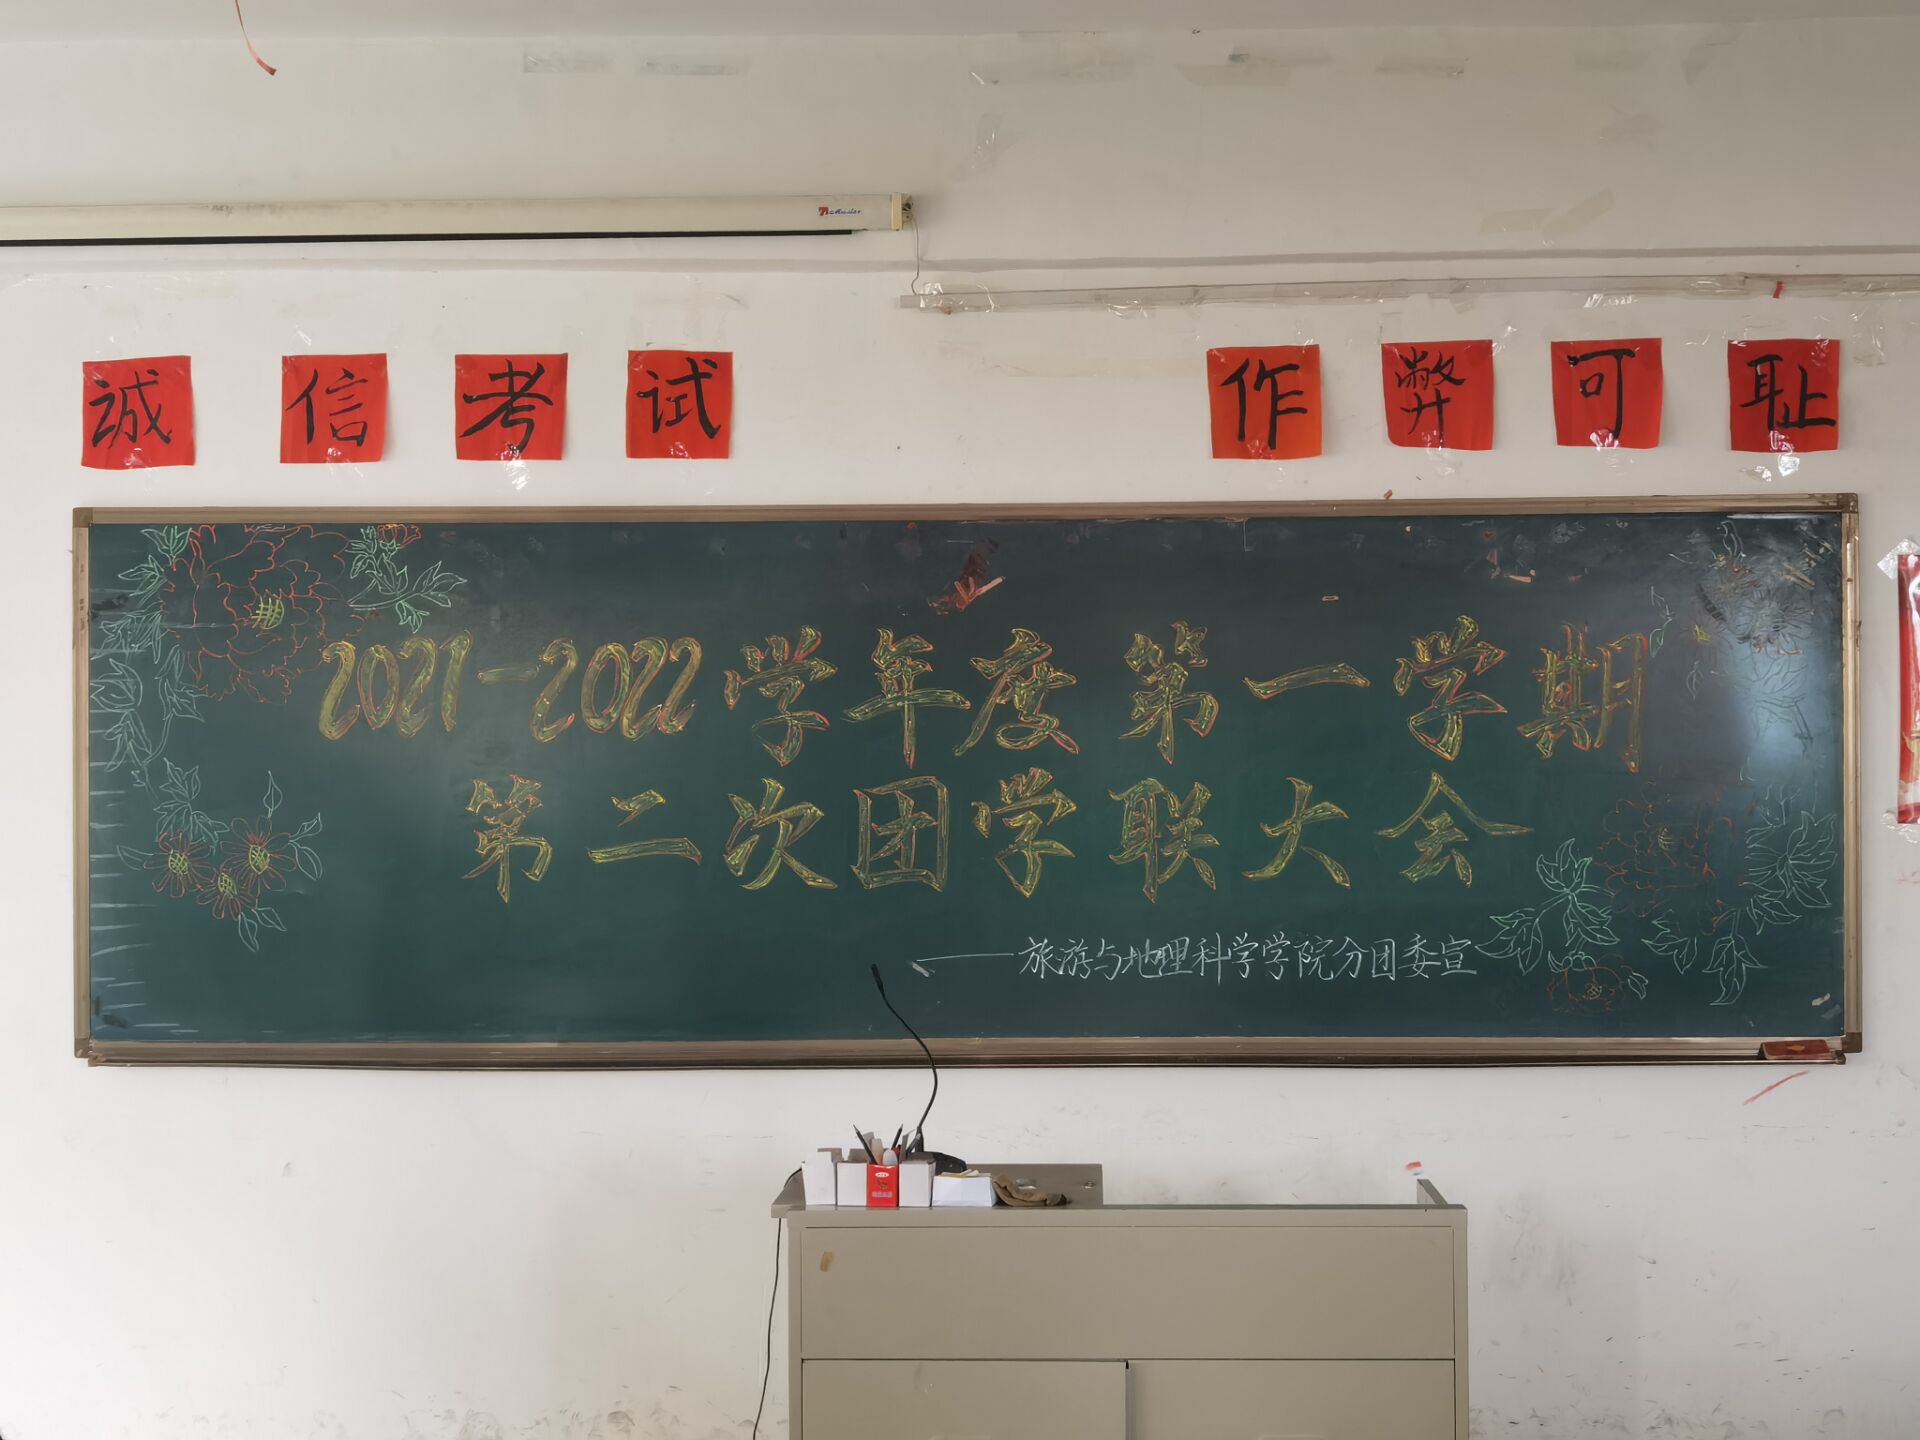 誠信考试
作弊可耻
2021-2022学年度第一学期
第二次团学联大会
——旅游与地理科学学院分团委宣